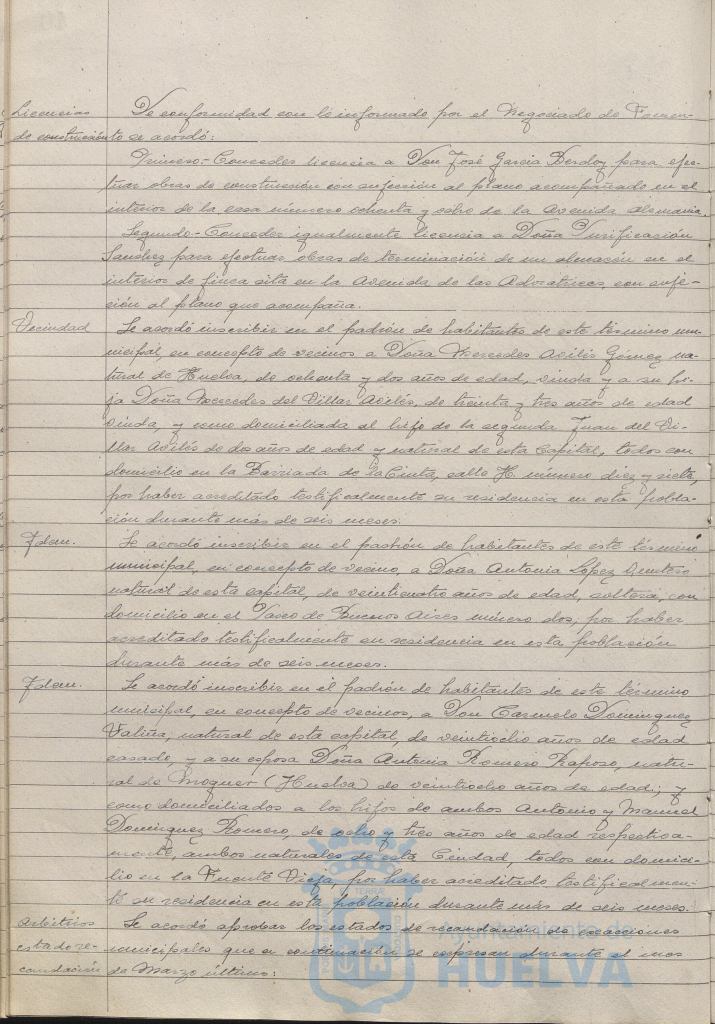 Licencias De conformidad con lo informado por el Negociado de Fomen-
de construcción to se acordó:
Primero-Conceder licencia a Don José García Berdoy para efec-
tuar obras de construcción con sujeción al plano acompañado en el
interior de la casa número ochenta y ocho de la Avenida Alemania.
Segundo-Conceder igualmente licencia a Doña Purificación
Sanchez para efectuar obras de terminación de un almacén en el
interior de finca sita en la Avenida de las Adoratrices, con suje-
ción al plano que acompaña.
Vecindad Se acordó inscribir en el padrón de habitantes de este término mu-
nicipal, en concepto de vecinos a Doña Mercedes Avilés Gómez na-
tural de Huelva, de ochenta y dos años de edad, viuda y a su hi-
ja Doña Mercedes del Villar Avilés, de treinta y tres años de edad
viuda, y como domiciliada al hijo de la segunda Juan del Vi-
llar Avilés de dos años de edad y natural de esta Capital, todos con
domicilio en la Barriada de la Cinta, calle H. número diez y siete,
por haber acreditado testificalmente su residencia en esta pobla-
ción durante más de seis meses.
Idem. Se acordó inscribir en el padrón de habitantes de este término
municipal, en concepto de vecino, a Doña Antonia López
natural de esta capital, de veinticuatro años de edad, soltera, con
domicilio en el Paseo de Buenos Aires número dos, por haber
acreditado testificalmente su residencia en esta población
durante más de seis meses.
Idem. Se acordó inscribir en el padrón de habitantes de este término
municipal, en concepto de vecinos, a Don Carmelo Dominguez
Valiña, natural de esta capital, de veintiocho años de edad
casado, y a su esposa Doña Antonia Romero Raposo, natu-
ral de Moguer (Huelva) de veintiocho años de edad; y
como domiciliados a los hijos de ambos Antonio y Manuel
Dominguez Romero, de ocho y tres años de edad respectiva-
mente, ambos naturales de esta Ciudad, todos con domici-
lio en la Fuente Vieja, por haber acreditado testificalmen-
te su residencia en esta población durante más de seis meses.
Arbitrios Se acordó aprobar los estados de recaudación de exacciones
estado re- municipales que a continuación se expresan durante el mes
caudación de Marzo último:
Ayuntamiento de
HUELVA